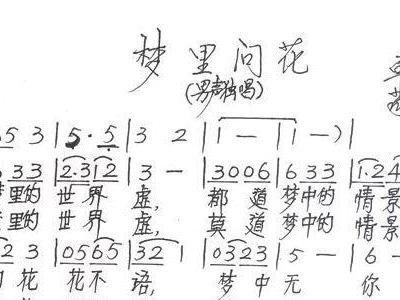 梦里问花
(男声独唱)
5 3 | 5 · 5 | 3 2 | 1 — | 1 — ) |
3 3 | 2 · 3 1 2 | 3 — | 3 0 0 6 | 6 3 3 | 1 · 2 4
里的 世界 虚, 都道 梦中的 情景
里的 世界 虚, 莫道 梦中的 情景
2 3 | 0 5 6 5 | 3 2 | 0 3 2 3 | 5 — | 6 —
花 花不 语, 梦中 无 你